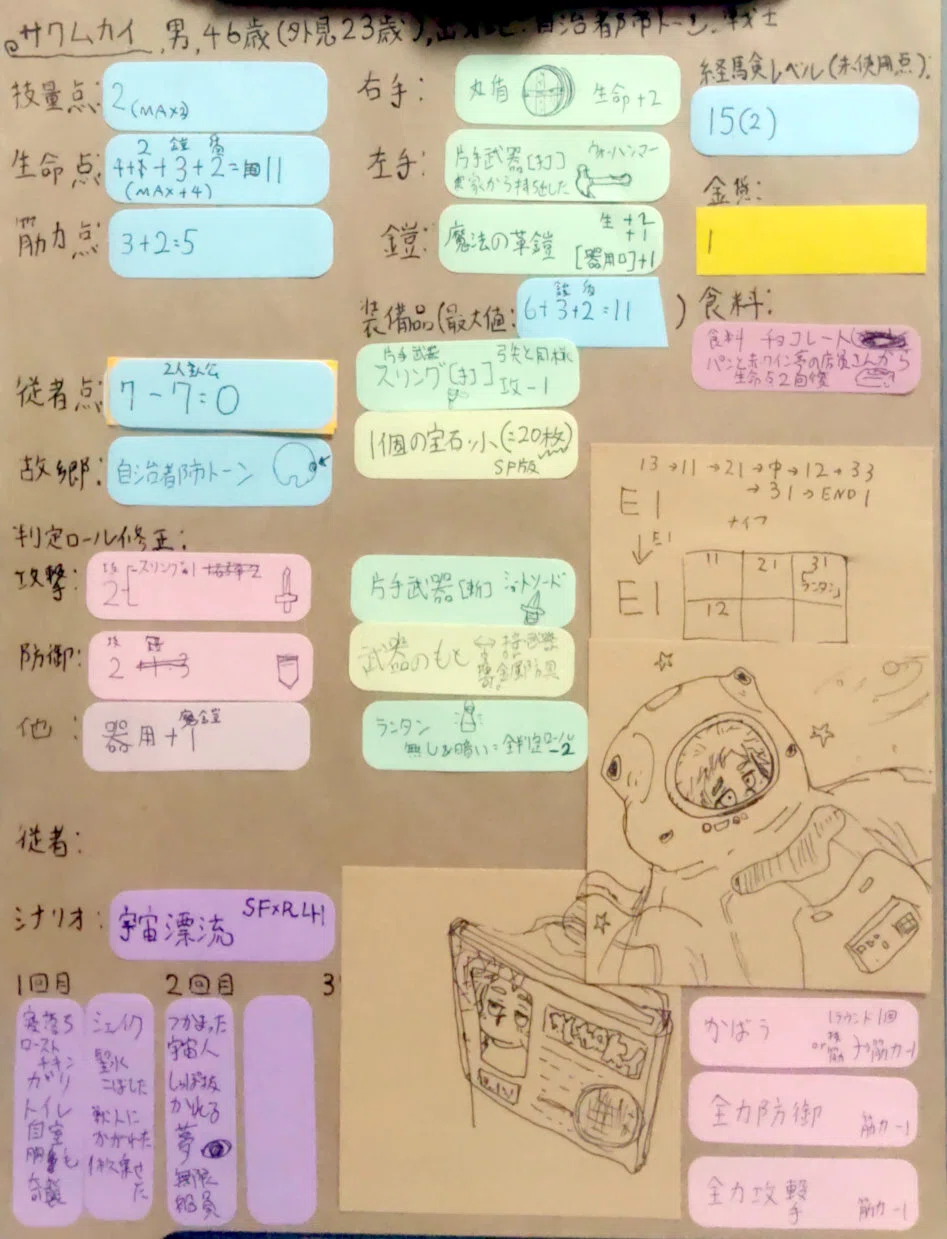 サワムカイ, 男, 46歳(外見23歳), 自治者都市トーン, 戦士
技量点:
2(MAX3)
生命点:
2 鎧 盾
+3+2=11
(MAX+4)
筋力点:
3+2=5
右手:
丸盾 生命+2
左手:
片手武器[打] ウォーハンマー
実家から持ち出した
鎧:
魔法の革鎧 生+2
+1
[器用]+1
経験レベル(未使用点):
15(2)
金貨:
1
装備品(最大値:
鎧 盾
6+3+2=11
)
食料:
食料 チョコレート
パンと赤ワイン亭の店員さんから
生命を2回復
片手武器 弓矢と同様
スリング[打] 攻-1
1個の宝石:小(=20枚)
SF版
従者点:
2人主人公
7-7=0
故郷:
自治者都市トーン
判定ロール修正:
攻撃:
2
スリング-1
防御:
2
他:
魔鎧
器用+1
片手武器[斬] ショートソード
武器のもと
ランタン
無し&暗い=全判定ロール-2
13→11→21→中→12→33
→31→END1
E1
E1
E1
ナイフ
11 21 31
ランタン
12
従者:
シナリオ:
宇宙漂流 SF×R
1回目
寝落ち
ロースト
チキン
ガリ
トイレ
自室
奇襲
シェイク
聖水
こぼした
2回目
つかまった
宇宙人
しっぽ抜
かれる
夢
無限
3
かばう 1ラウンド1回
筋力-1
全力防御 筋力-1
全力攻撃 筋力-1
手